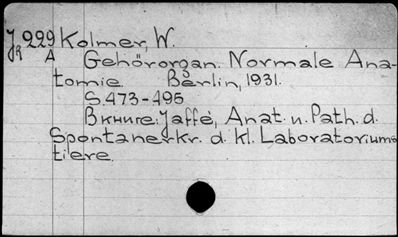 J 229 Kolmer, W.
R A Gehörorgan. Normale Ana-
tomie. Berlin, 1931.
S. 473-495
Вкниге: Jaffe, Anat. u. Path. d.
Spontanerkr. d. kl. Laboratoriums
tiere.